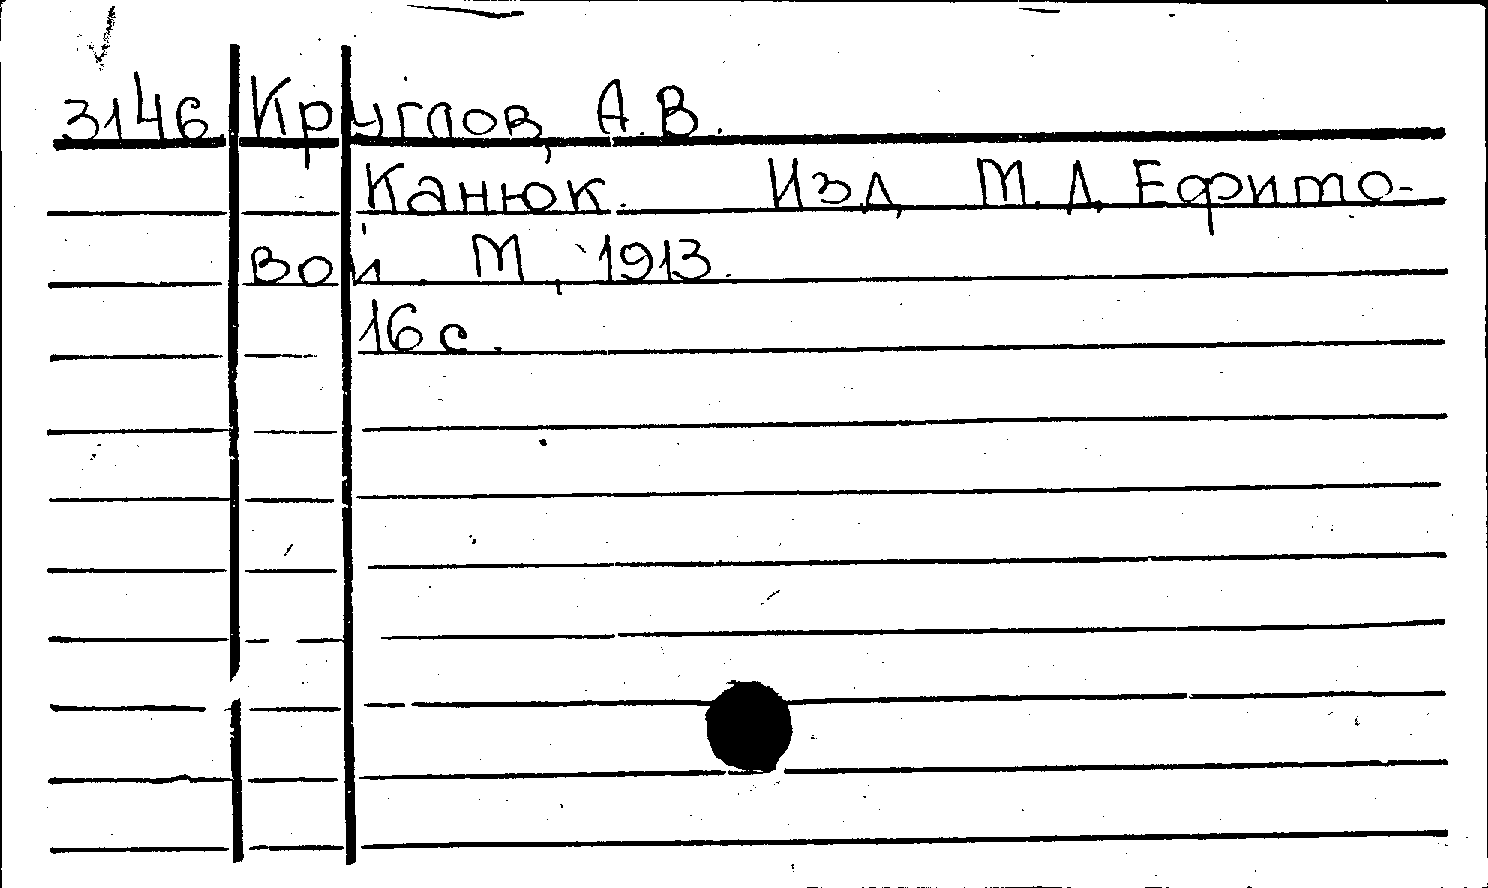 3146 Круглов, А.В.
Канюк. Изд. М.Д. Ефимо-
вой. М., 1913.
16 с.